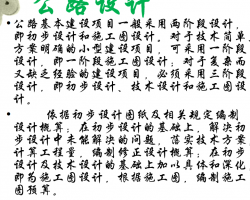 公路设计
•公路基本建设项目一般采用两阶段设计，
即初步设计和施工图设计。对于技术简单、
方案明确的小型建设项目，可采用一阶段
设计，即一阶段施工图设计；对于复杂而
又缺乏经验的建设项目，必须采用三阶段
设计，即初步设计、技术设计和施工图设
计。
• 依据初步设计图纸及相关规定编制
设计概算；在初步设计的基础上，解决初
步设计中未能解决的问题，落实技术方案
计算工程量，编制修正设计概算；在初步
设计及技术设计的基础上加以具体和深化
即为施工图设计，根据施工图，编制施工
图预算。